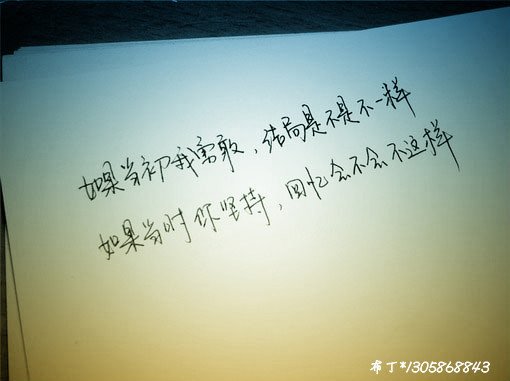 如果当初我勇敢，结局是不是不一样
如果当时你坚持，回忆会不会不这样
布丁*1305868843